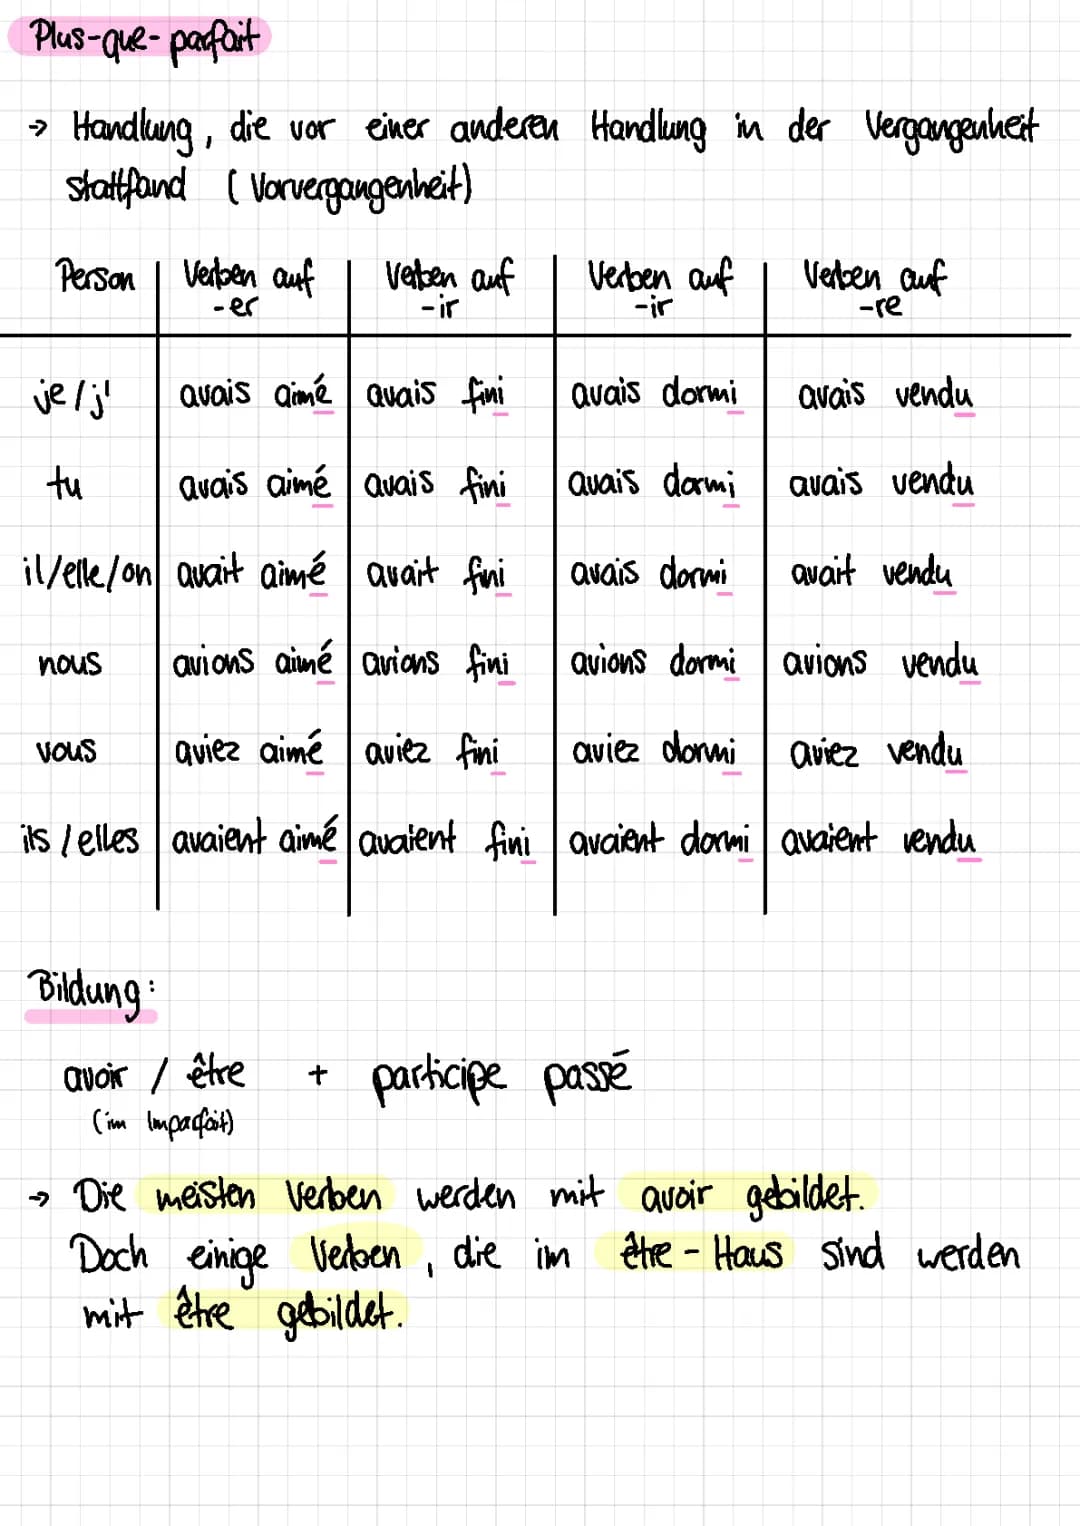 Plus-que-parfait
→ Handlung, die vor einer anderen Handlung in der Vergangenheit
stattfand (Vorvergangenheit)
Person | Verben auf -er | Verben auf -ir | Verben auf -ir | Verben auf -re
je/j' | avais aimé | avais fini | avais dormi | avais vendu
tu | avais aimé | avais fini | avais dormi | avais vendu
il/elle/on | avait aimé | avait fini | avais dormi | avait vendu
nous | avions aimé | avions fini | avions dormi | avions vendu
vous | aviez aimé | aviez fini | aviez dormi | aviez vendu
ils/elles | avaient aimé | avaient fini | avaient dormi | avaient vendu
Bildung:
avoir / être + participe passé
(im Imparfait)
→ Die meisten Verben werden mit avoir gebildet.
Doch einige Verben, die im être-Haus sind werden
mit être gebildet.